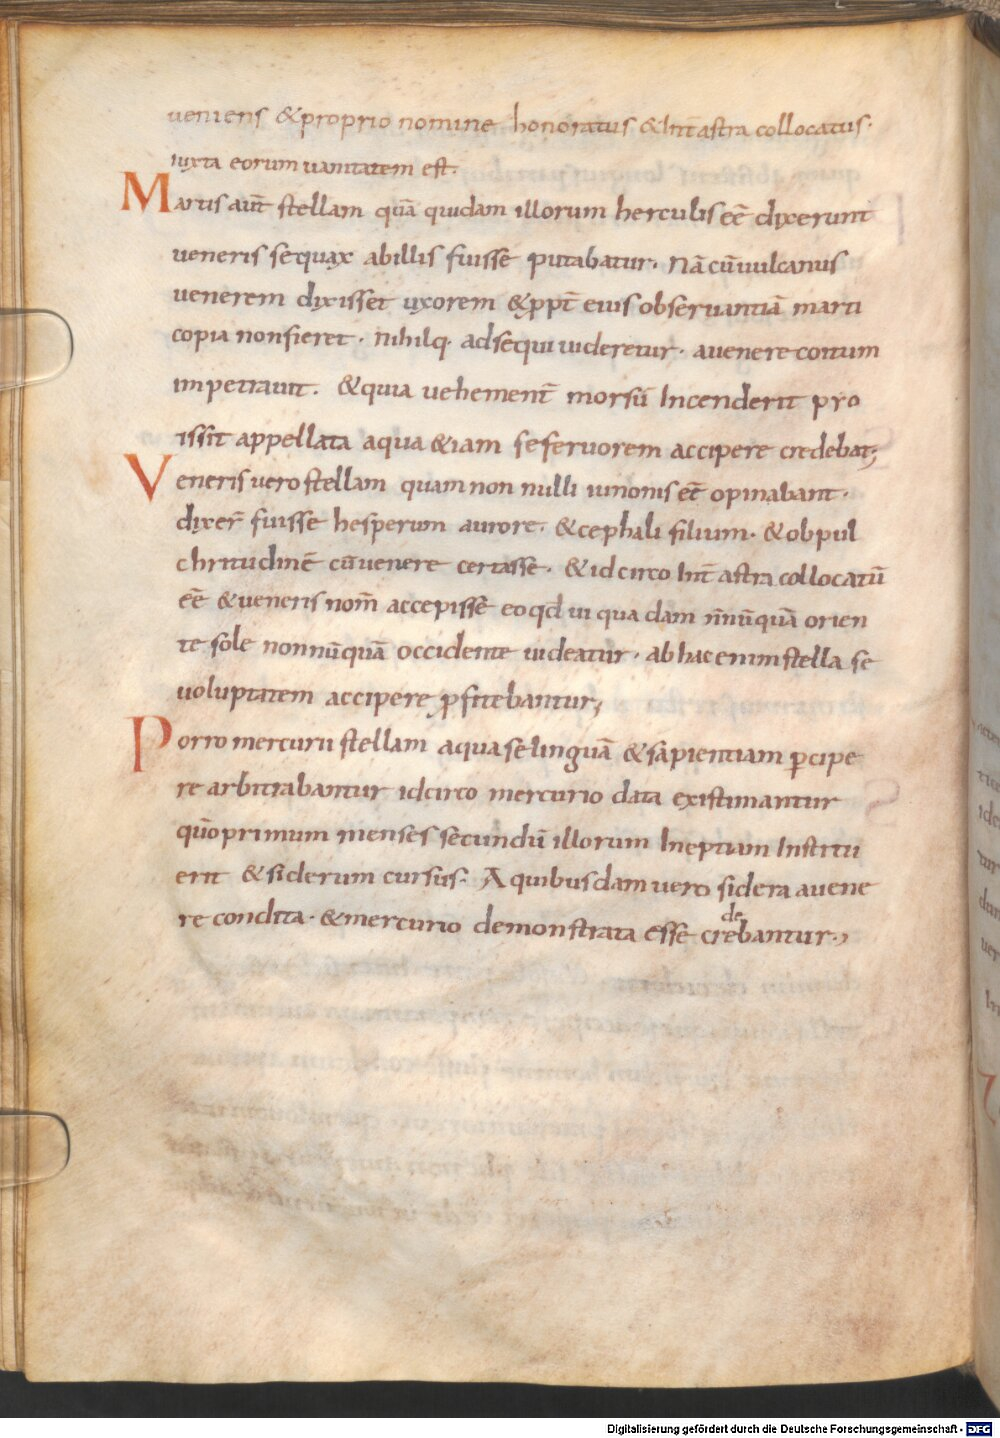 ueniens & proprio nomine honoratus & int̄ astra collocatus·
iuxta eorum uanitatem est·
Martis aūt stellam quā quidam illorum herculis eē dixerunt
ueneris sequax ab illis fuisse putabatur· Nā cū uulcanus
uenerem dixisset uxorem & ppt̄ eius obseruantiā marti
copia non fieret· nihilq· adsequi uideretur· a uenere coitum
impetrauit· & quia uehement̄ morsū incenderit pro
issit appellata a qua &iam se feruorem accipere credebat;
Veneris uero stellam quam non nulli iunonis eē opinabant·
dixer̄ fuisse hesperum aurore· & cephali filium· & ob pul
chritudinē cū uenere certasse· & idcirco int̄ astra collocatū
eē & ueneris nom̄ accepisse eo qd ui qua dam n̄nūquā orien
te sole non nūquā occidente uideatur· ab hac enim stella se
uoluptatem accipere ꝓfitebantur;
Porro mercurii stellam a qua se linguā & sapientiam ꝑcipe
re arbitrabantur idcirco mercurio data existimantur
quō primum menses secundū illorum ineptiam institu
erit & siderum cursus· A quibusdam uero sidera auene
re condita· & mercurio demonstrata esse credebantur·,
Digitalisierung gefördert durch die Deutsche Forschungsgemeinschaft - DFG